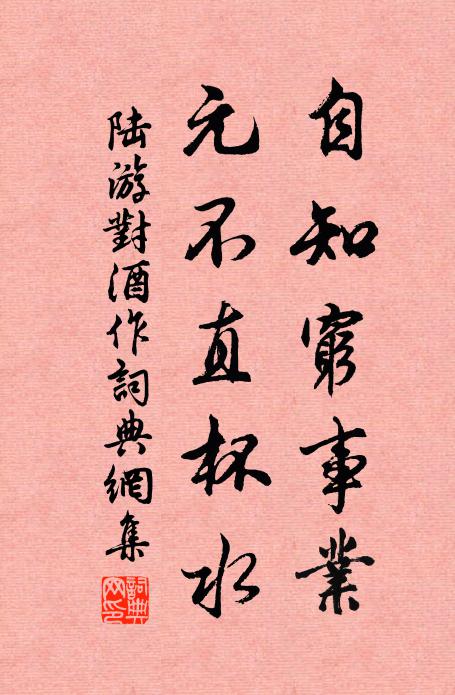 自知窮事業
元不直杯水
陆游對酒作詞典網集
詞典
网印